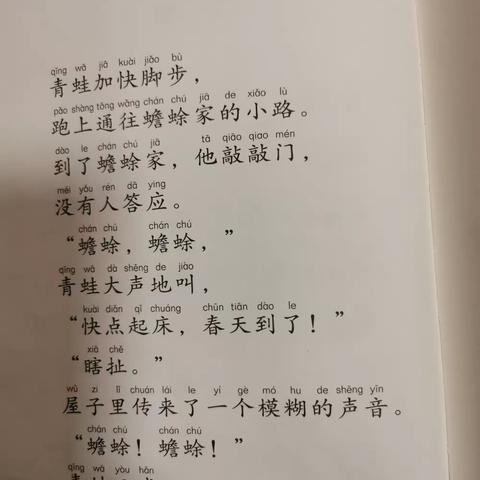 qīng wā jiā kuài jiǎo bù
青蛙加快脚步，
pǎo shàng tōng wǎng chán chú jiā de xiǎo lù
跑上通往蟾蜍家的小路。
dào le chán chú jiā tā qiāo qiao mén
到了蟾蜍家，他敲敲门，
méi yǒu rén dā ying
没有人答应。
chán chú chán chú
“蟾蜍，蟾蜍，”
qīng wā dà shēng de jiào
青蛙大声地叫，
kuài diǎn qǐ chuáng chūn tiān dào le
“快点起床，春天到了！”
xiā chě
“瞎扯。”
wū zi lǐ chuán lái le yí gè mó hu de shēng yīn
屋子里传来了一个模糊的声音。
chán chú chán chú
“蟾蜍！蟾蜍！”
qīng wā yòu hǎn